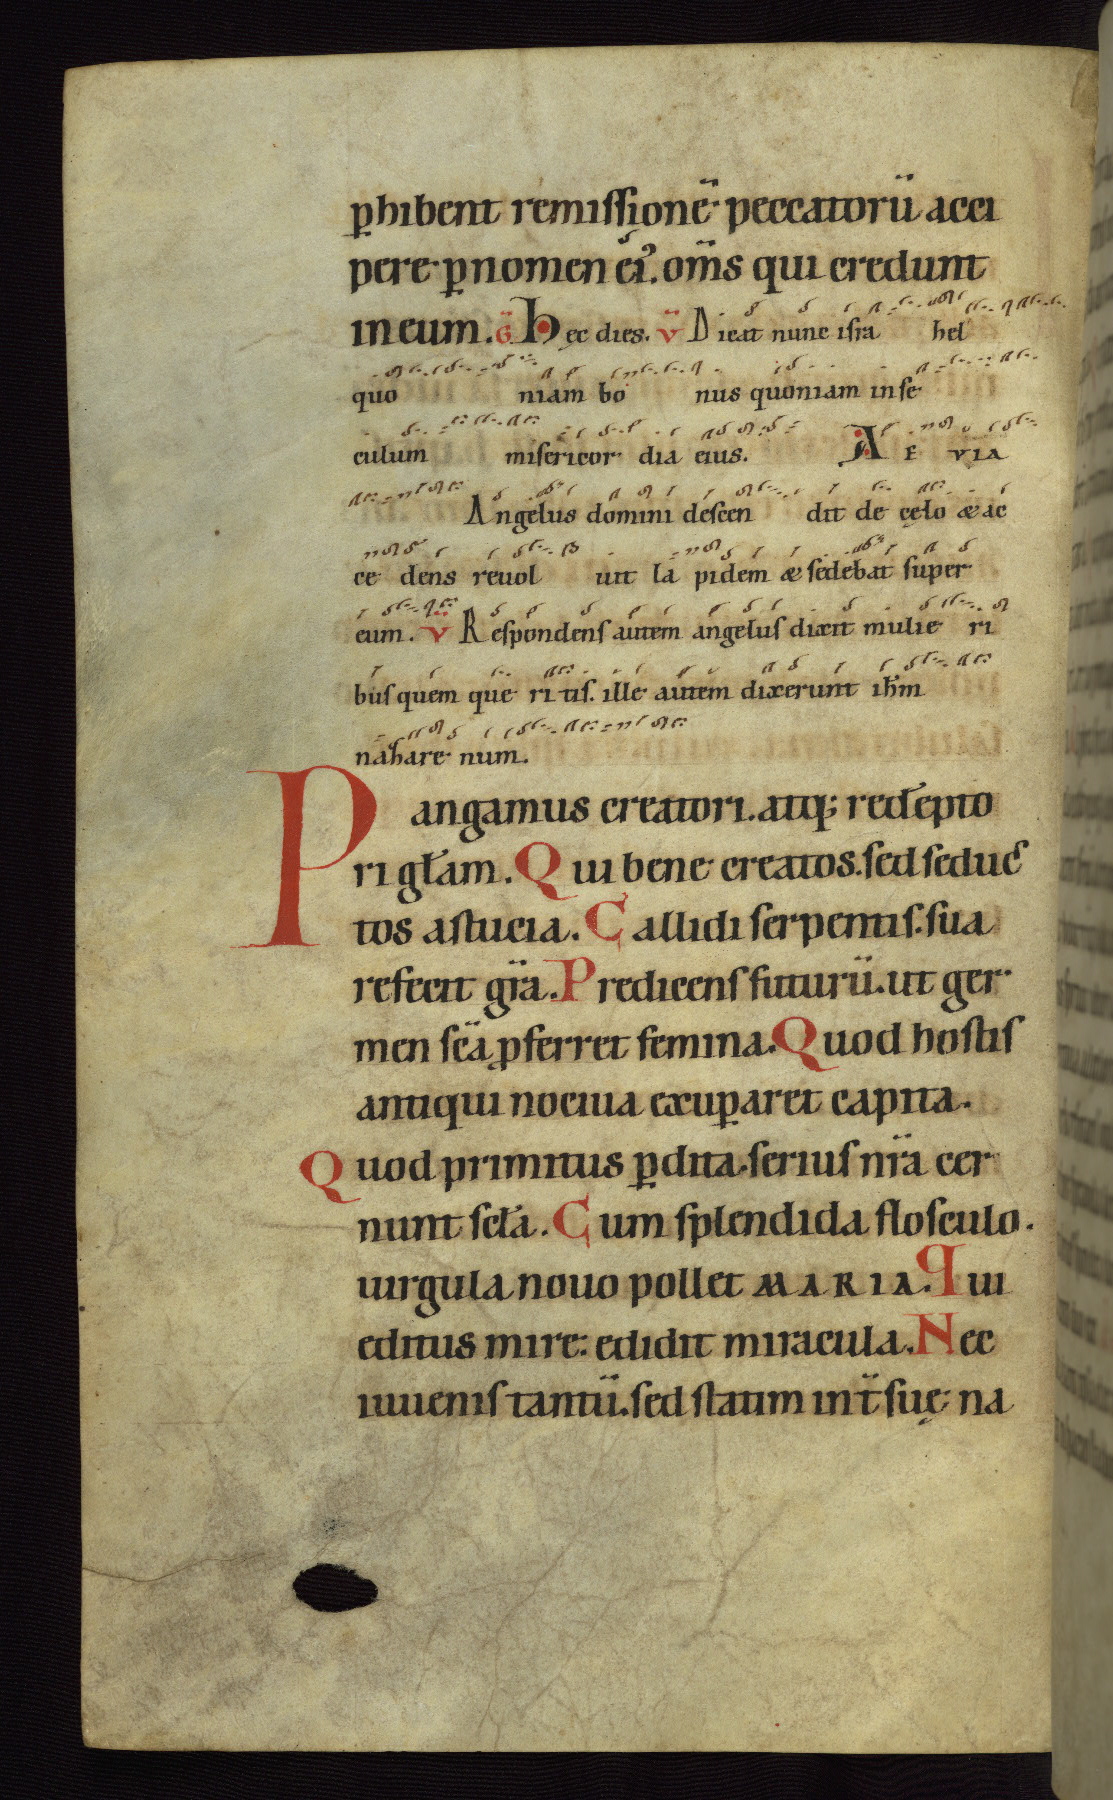 ꝑhibent remissionē peccatorū acci
pere ꝑ nomen ei᷒. om̄s qui credunt
in eum. G̅ Hec dies. V̅ Dicat nunc isra hel
quo niam bo nus quoniam in se
culum misericor dia eius. A E VIA
Angelus domini descen dit de cęlo & ac
ce dens revol uit la pidem & sedebat super
eum. V̅ Respondens autem angelus dixit mulie ri
bus quem que ri tis. ille autem dixerunt ihm̄
nazare num.
Pangamus creatori. atq; redempto
ri gl̄am. Qui bene creatos. sed seduc
tos astucia. Callidi serpentis. sua
refecit gr̄a. Predicens futurū. ut ger
men sc̄a ꝓferret femina. Quod hostis
antiqui nociua exuꝑaret capita.
Quod primitus ꝑdita. serius nr̄a cer
nunt scl̄a. Cum splendida flosculo.
uirgula nouo pollet MARIA. Qui
editus mire: edidit miracula. Nec
iuuenis tantū. sed statim int̄ suę na